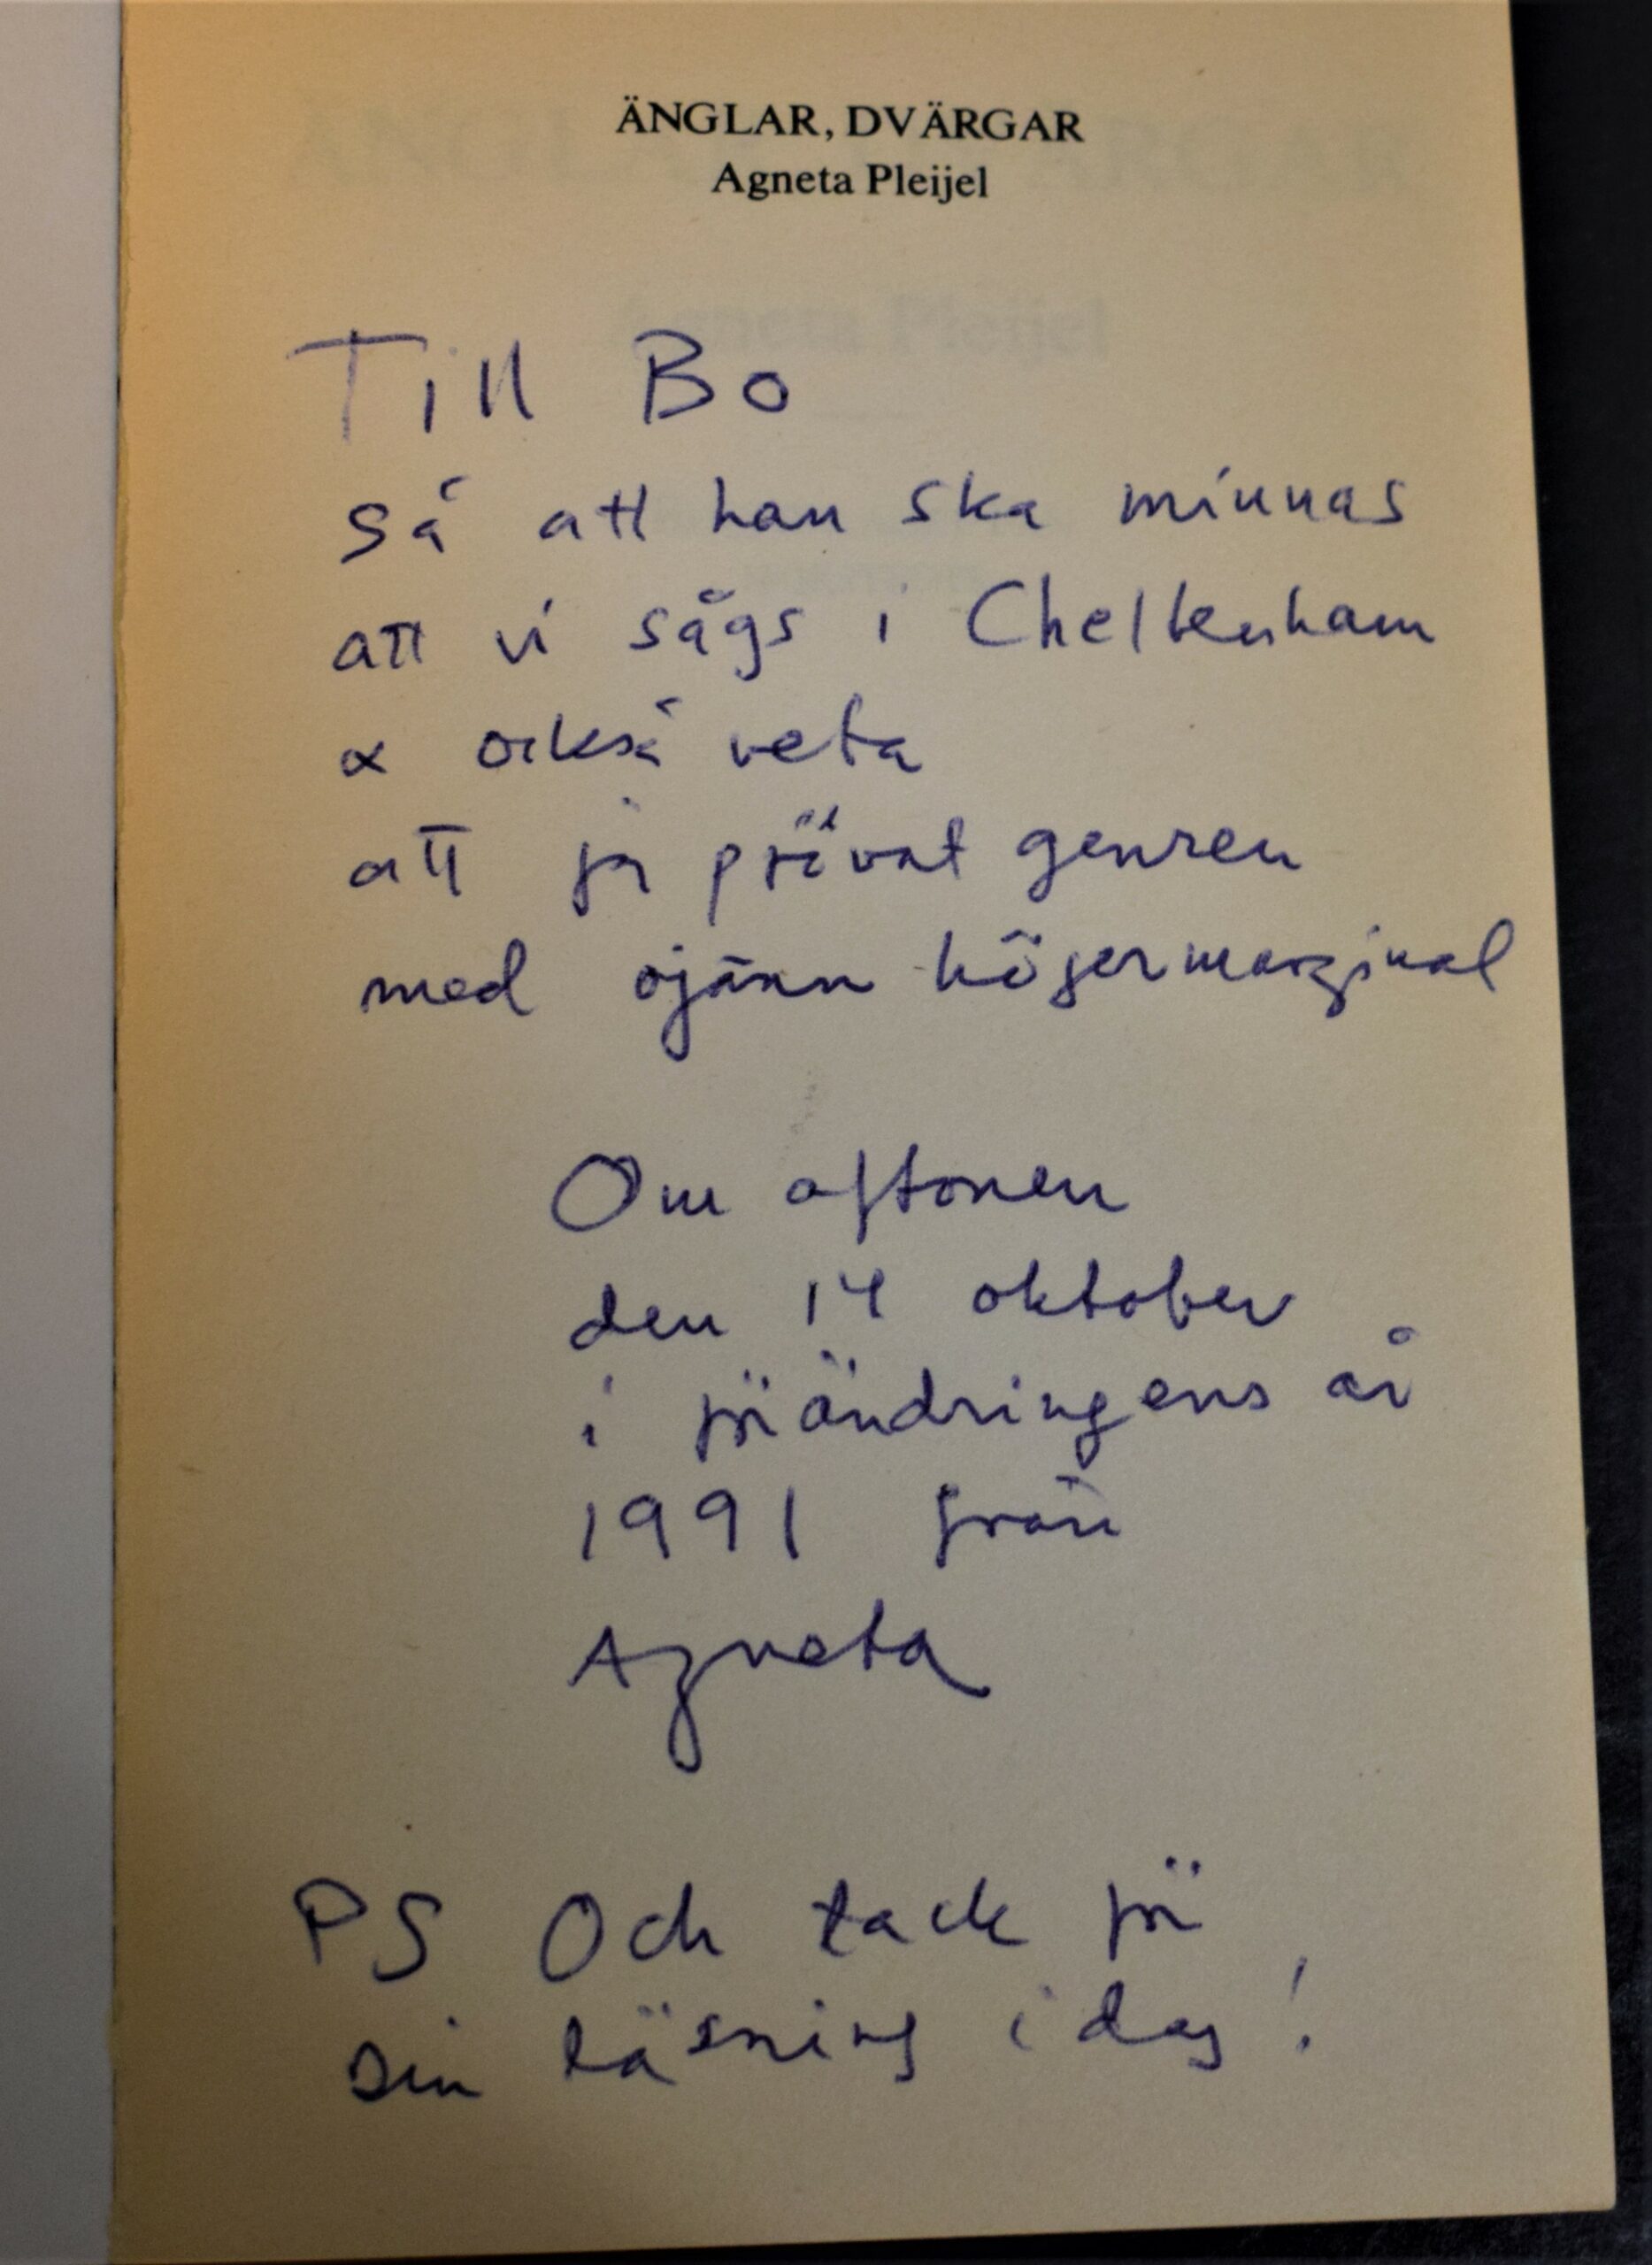 ÄNGLAR, DVÄRGAR
Agneta Pleijel
Till Bo
Så att han ska minnas
att vi sågs i Cheltenham
& också veta
att ja prövat genren
med ojämn högermarginal
Om aftonen
den 14 oktober
i förändringens år
1991 från
Agneta
PS Och tack för
Din läsning idag!